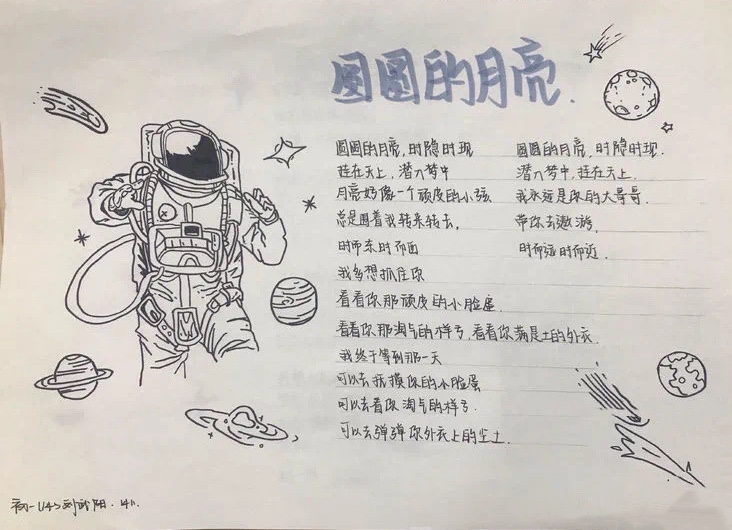 圆圆的月亮.
圆圆的月亮,时隐时现
挂在天上,潜入梦中
月亮好像一个顽皮的小孩
总是围着我转来转去,
时而东时而西
我多想抓住你
看看你那顽皮的小脸蛋
看看你那淘气的样子,看看你满是土的外衣.
我终于等到那一天
可以去抚摸你的小脸蛋
可以去看你淘气的样子.
可以去弹弹你外衣上的尘土.
圆圆的月亮,时隐时现.
潜入梦中,挂在天上.
我永远是你的大哥哥
带你去遨游,
时而远时而近.